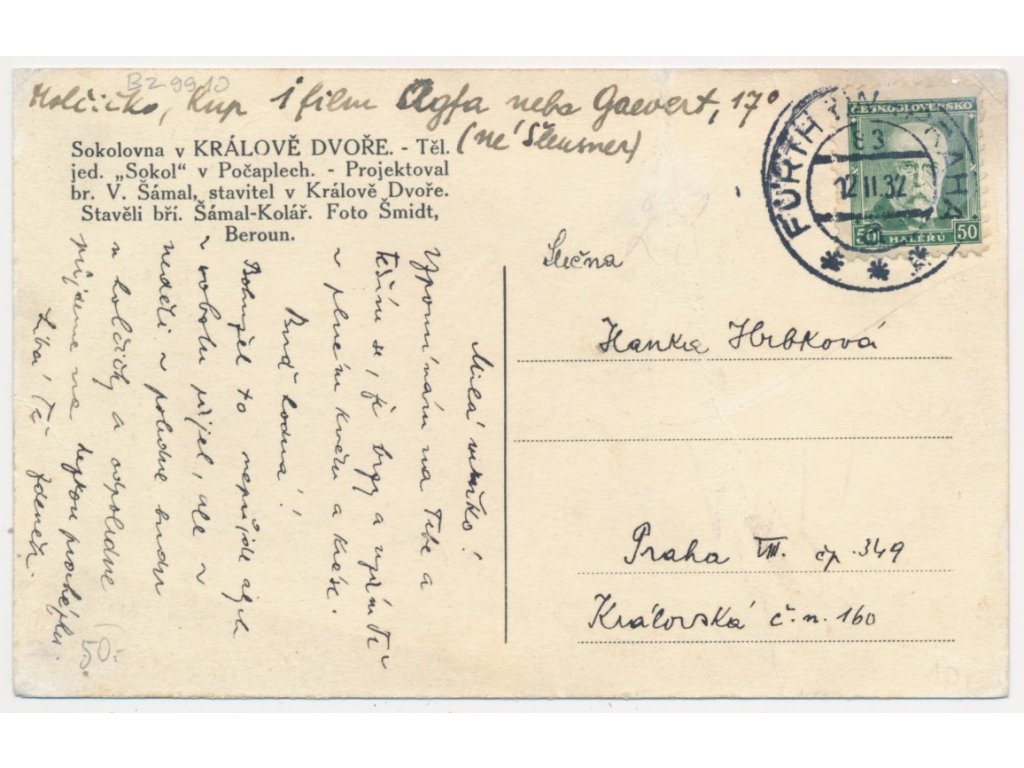 BZ 9910
Holčičko, kup 1 film Agfa nebo Gaevert, 17°
(ne Šleusner)
Sokolovna v KRÁLOVĚ DVOŘE. - Těl.
jed. „Sokol" v Počaplech. - Projektoval
br. V. Šámal, stavitel v Králově Dvoře.
Stavěli bří. Šámal-Kolář. Foto Šmidt,
Beroun.
ČESKOSLOVENSKO
50 HALÉŘŮ 50
FÜRTH PRAHA
83
12 II 32
Milá
Vzpomínám na Tebe a
těším se, je brzy a
v plném květu a kráse.
Buď hodná!
Bohužel to nepůjde abych
v sobotu přijel, ale v
neděli v poledne budu
u holčičky a odpoledne
půjdeme na hezkou procházku.
Líbá Tě Zdeněk.
Slečna
Hanka Hrbková
Praha VIII. čp. 349
Královská č. n. 160